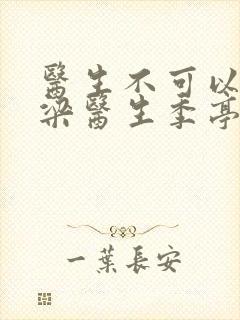 醫生不可以
梁醫生季亭
一葉長安